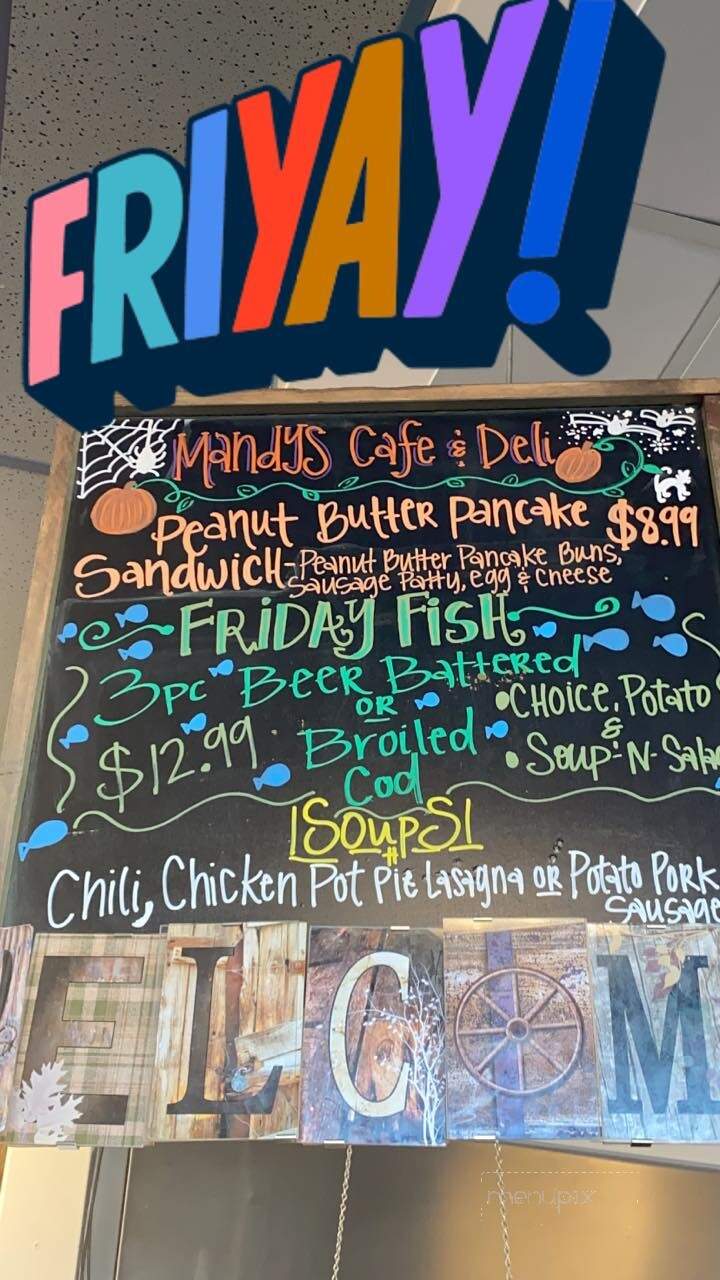 FRIYAY!
Mandys Cafe & Deli
Peanut Butter Pancake $8.99
Sandwich - Peanut Butter Pancake Buns,
Sausage Patty, egg & cheese
FRiDAY FiSH
3pc Beer Battered
OR
$12.99 Broiled
Cod
• CHOICE, Potato
&
• Soup-N-Sala
SoupS
Chili, Chicken Pot Pie Lasagna OR Potato Pork
Sausage
ELCOM
menupix